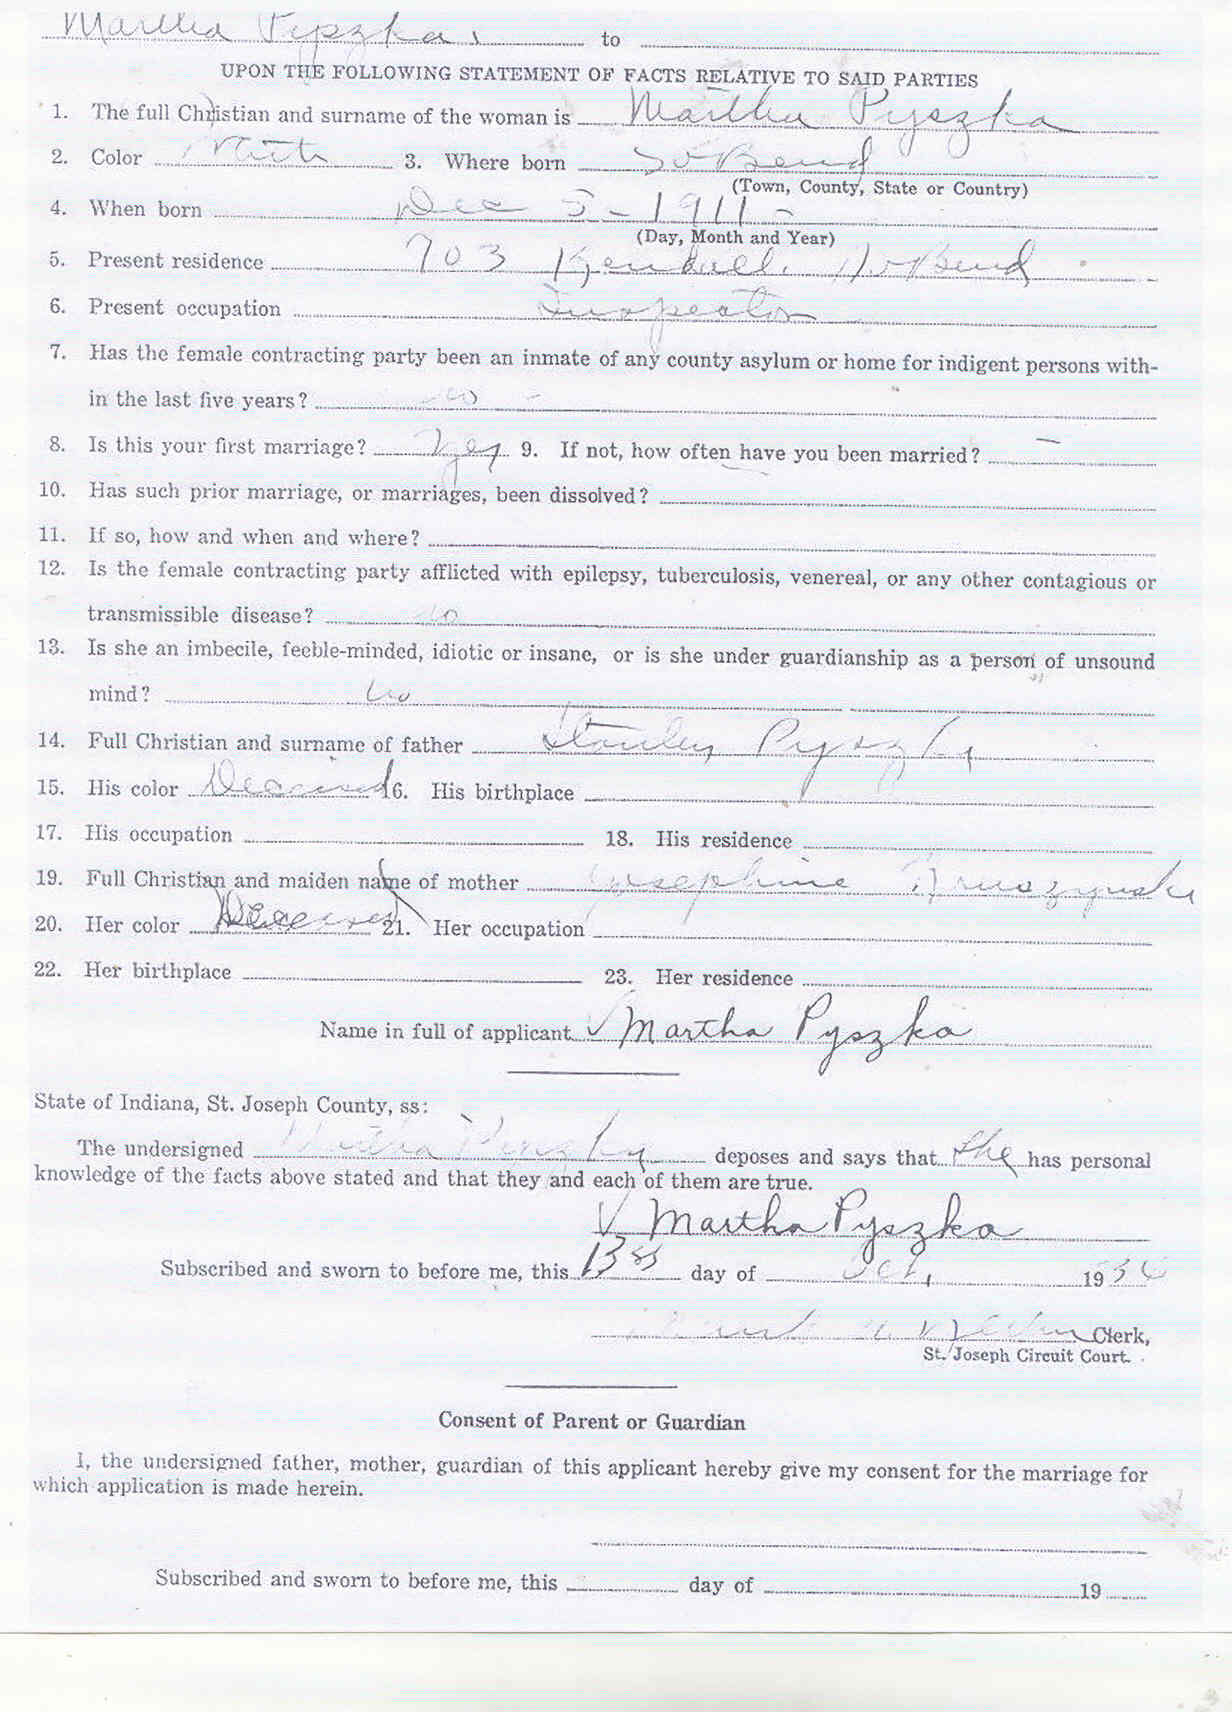 Martha Pyszka, to
UPON THE FOLLOWING STATEMENT OF FACTS RELATIVE TO SAID PARTIES
1. The full Christian and surname of the woman is Martha Pyszka
2. Color White 3. Where born So Bend
(Town, County, State or Country)
4. When born Dec 5 - 1911 -
(Day, Month and Year)
5. Present residence 703 Kendall. So Bend
6. Present occupation Inspector
7. Has the female contracting party been an inmate of any county asylum or home for indigent persons with-
in the last five years? no -
8. Is this your first marriage? Yes 9. If not, how often have you been married? —
10. Has such prior marriage, or marriages, been dissolved?
11. If so, how and when and where?
12. Is the female contracting party afflicted with epilepsy, tuberculosis, venereal, or any other contagious or
transmissible disease? no
13. Is she an imbecile, feeble-minded, idiotic or insane, or is she under guardianship as a person of unsound
mind? no
14. Full Christian and surname of father Stanley Pyszka
15. His color Deceased 16. His birthplace
17. His occupation 18. His residence
19. Full Christian and maiden name of mother Josephine
20. Her color Deceased 21. Her occupation
22. Her birthplace 23. Her residence
Name in full of applicant √ Martha Pyszka
State of Indiana, St. Joseph County, ss:
The undersigned Martha Pyszka deposes and says that She has personal
knowledge of the facts above stated and that they and each of them are true.
√ Martha Pyszka
Subscribed and sworn to before me, this 13 day of Oct, 1936
Clerk,
St. Joseph Circuit Court.
Consent of Parent or Guardian
I, the undersigned father, mother, guardian of this applicant hereby give my consent for the marriage for
which application is made herein.
Subscribed and sworn to before me, this day of 19